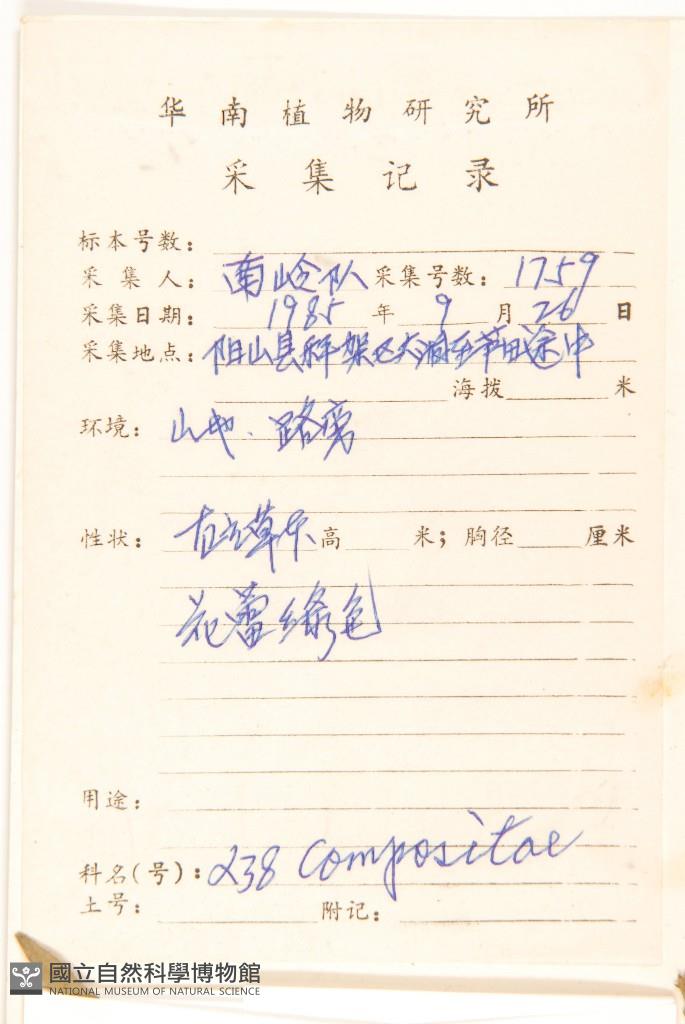 华南植物研究所
采集记录
标本号数：
采集人：南岭队 采集号数：1759
采集日期：1985年9月26日
采集地点：阳山县秤架区 至 途中
海拨 米
环境：山地．路旁
性状：直立草本 高 米；胸径 厘米
花蕾绿色
用途：
科名(号)：238 Compositae
土号： 附记：
國立自然科學博物館
NATIONAL MUSEUM OF NATURAL SCIENCE